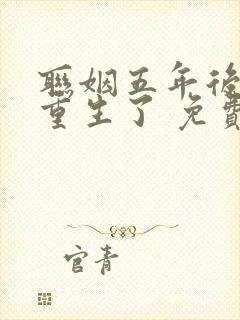 聯姻五年後
重生了 免費
官青